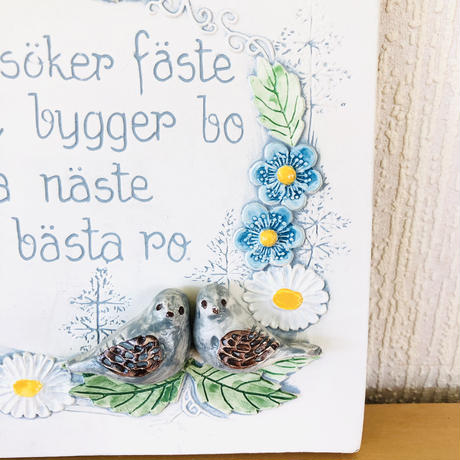 söker fäste
bygger bo
näste
bästa ro.